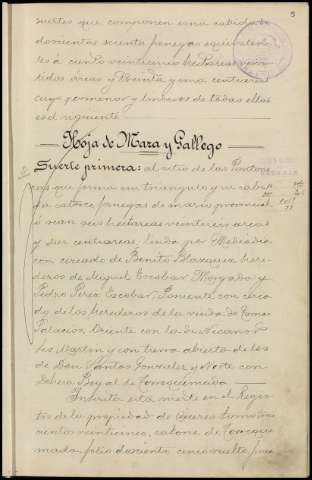 5
suertes que componen en su cabida de
doscientas sesenta fanegas equivalen
tes á ciento veintinueve hectareas vein
tidos áreas y treinta y una centiareas
cuyo pormenor y linderos de todas ellas
es el siguiente
Hoja de Mara y Gallego
Suerte primera: al sitio de las
que forma un triangulo y su cabi
da catorce fanegas de marco provincial
ó sean seis hectareas veintiseis areas
y diez centiareas, linda por Mediodia
con cercado de Benito Blazquez here
deros de Miguel Escobar Morgado y
Pedro Perez Escobar, Poniente con cerca
do de los herederos de la viuda de Tomas
Palacios, Oriente con la de Nicanor
Martin y con tierra abierta de los
de Don Santos Gonzalez y Norte con
Dehesa Boyal de Torrequemada
Inscrita esta suerte en el Regis
tro de la propiedad de Cáceres tomo
ciento veinticinco, catorce de Torreque
mada folio doscientos cinco vuelto